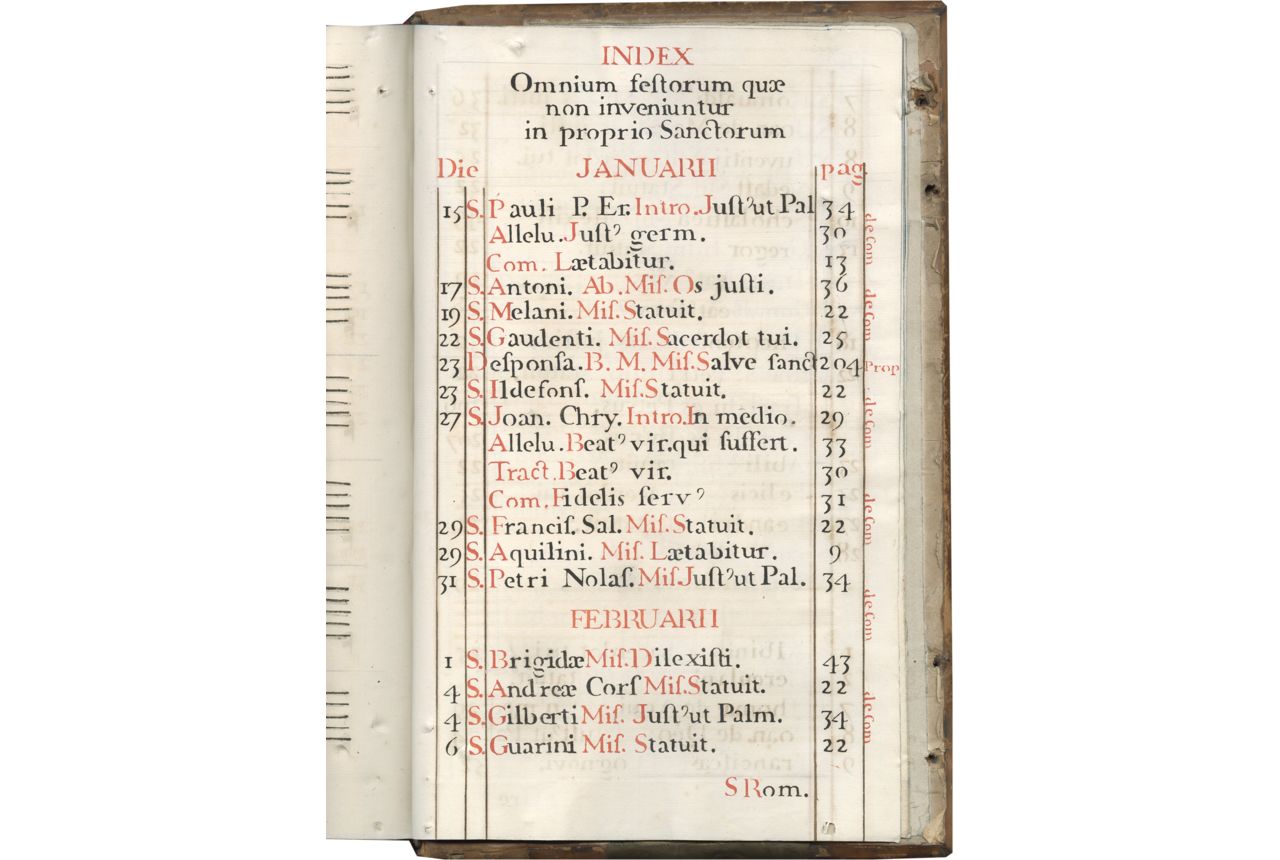 INDEX
Omnium feſtorum quæ
non inveniuntur
in proprio Sanctorum
Die JANUARII pag.
15 S. Pauli P. Er. Intro. Juſtꝰ ut Pal 34
Allelu. Juſtꝰ germ. 30
Com. Lætabitur. 13
de Com
17 S. Antoni. Ab. Miſ. Os juſti. 36
19 S. Melani. Miſ. Statuit. 22
de Com
22 S. Gaudenti. Miſ. Sacerdot tui. 25
23 Deſponſa. B. M. Miſ. Salve ſanct 204 Prop
23 S. Ildefonſ. Miſ. Statuit. 22
27 S. Joan. Chry. Intro. In medio. 29
de Com
Allelu. Beatꝰ vir. qui ſuffert. 33
Tract. Beatꝰ vir. 30
Com. Fidelis ſervꝰ 31
29 S. Franciſ. Sal. Miſ. Statuit. 22
de Com
29 S. Aquilini. Miſ. Lætabitur. 9
31 S. Petri Nolaſ. Miſ. Juſtꝰ ut Pal. 34
FEBRUARII
de Com
1 S. Brigidæ Miſ. Dilexiſti. 43
4 S. Andreæ Corſ Miſ. Statuit. 22
4 S. Gilberti Miſ. Juſtꝰ ut Palm. 34
de Com
6 S. Guarini Miſ. Statuit. 22
S Rom.